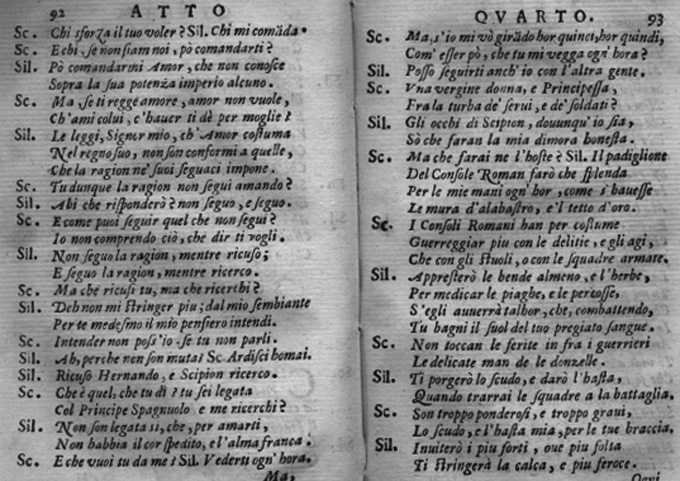 92 ATTO
Sc. Chi sforza il tuo voler? Sil. Chi mi comãda.
Sc. E chi, se non siam noi, pò comandarti?
Sil. Pò comandarmi Amor, che non conosce
Sopra la sua potenza imperio alcuno.
Sc. Ma, se ti regge amore, amor non vuole,
Ch'ami colui, c'hauer ti dè per moglie?
Sil. Le leggi, Signor mio, ch'Amor costuma
Nel regno suo, non son conformi a quelle,
Che la ragion ne' suoi seguaci impone.
Sc. Tu dunque la ragion non segui amando?
Sil. Ahi che risponderò? non seguo, e seguo.
Sc. E come puoi seguir quel che non segui?
Io non comprendo ciò, che dir ti vogli.
Sil. Non seguo la ragion, mentre ricuso;
E seguo la ragion, mentre ricerco.
Sc. Ma chè ricusi tu, ma che ricerchi?
Sil. Deh non mi stringer piu; dal mio sembiante
Per te medesmo il mio pensiero intendi.
Sc. Intender non poss'io se tu non parli.
Sil. Ah, perche non son muta? Sc. Ardisci homai.
Sil. Ricuso Hernando, e Scipion ricerco.
Sc. Che è quel, che tu dì? tu sei legata
Col Principe Spagnuolo e me ricerchi?
Sil. Non son legata sì, che, per amarti,
Non habbia il cor spedito, e l'alma franca.
Sc. E che vuoi tu da me? Sil. Vederti ogn'hora.
Ma,
QVARTO. 93
Sc. Ma, s'io mi vò girãdo hor quinci, hor quindi,
Com'esser pò, che tu mi vegga ogn'hora?
Sil. Posso seguirti anch'io con l'altra gente.
Sc. Vna vergine donna, e Principessa,
Fra la turba de' serui, e de' soldati?
Sil. Gli occhi di Scipion, douunqu'io sia,
Sò che faran la mia dimora honesta.
Sc. Ma che farai ne l'hoste? Sil. Il padiglione
Del Console Roman farò che splenda
Per le mie mani ogn'hor, come s'hauesse
Le mura d'alabastro, e'l tetto d'oro.
Sc. I Consoli Romani han per costume
Guerreggiar piu con le delitie, e gli agi,
Che con gli stuoli, o con le squadre armate.
Sil. Appresterò le bende almeno, e l'herbe,
Per medicar le piaghe, e le percosse,
S'egli auuerrà talhor, che, combattendo,
Tu bagni il suol del tuo pregiato sangue.
Sc. Non toccan le ferite in fra i guerrieri
Le delicate man de le donzelle.
Sil. Ti porgerò lo scudo, e darò l'hasta,
Quando trarrai le squadre a la battaglia.
Sc. Son troppo ponderosi, e troppo graui,
Lo scudo, e l'hasta mia, per le tue braccia.
Sil. Inuiterò i piu forti, oue piu folta
Ti stringerà la calca, e piu feroce.